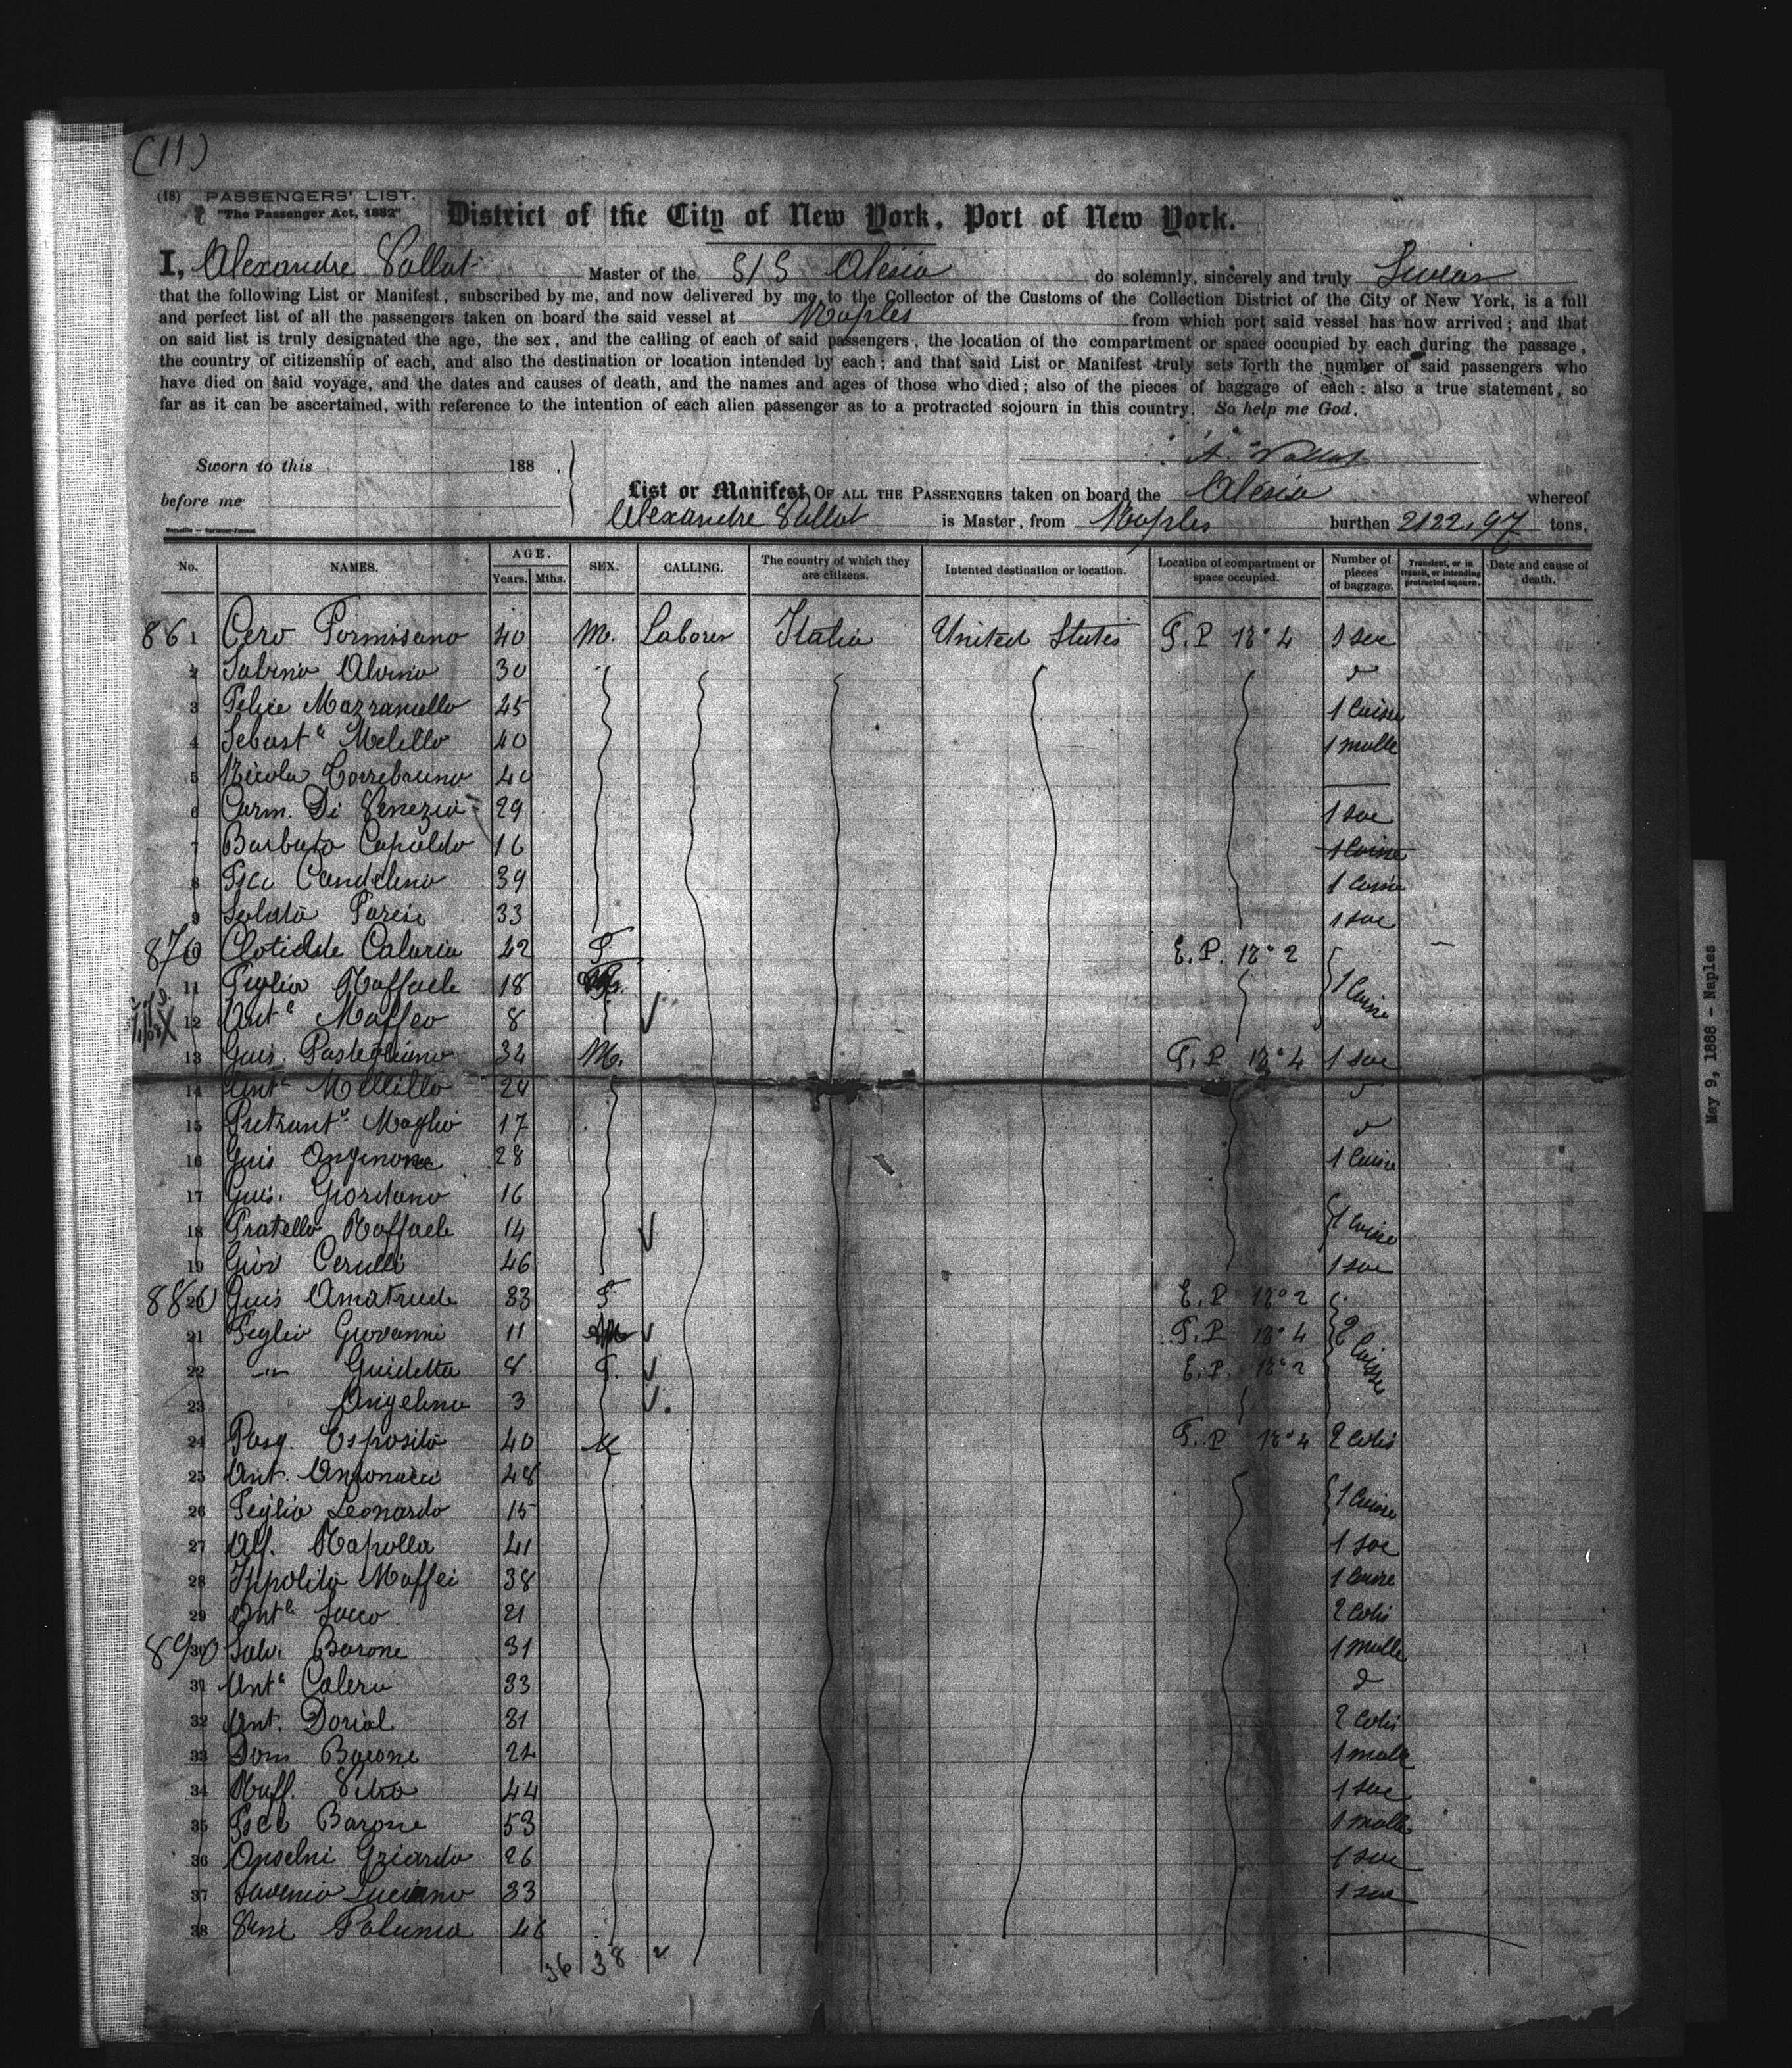 (11)
(18) PASSENGERS' LIST.
"The Passenger Act, 1882"
District of the City of New York, Port of New York.
I, Alexandre Vallat Master of the S/S Alesia do solemnly, sincerely and truly Swear
that the following List or Manifest, subscribed by me, and now delivered by me to the Collector of the Customs of the Collection District of the City of New York, is a full
and perfect list of all the passengers taken on board the said vessel at Naples from which port said vessel has now arrived; and that
on said list is truly designated the age, the sex, and the calling of each of said passengers, the location of the compartment or space occupied by each during the passage,
the country of citizenship of each, and also the destination or location intended by each; and that said List or Manifest truly sets forth the number of said passengers who
have died on said voyage, and the dates and causes of death, and the names and ages of those who died; also of the pieces of baggage of each: also a true statement, so
far as it can be ascertained, with reference to the intention of each alien passenger as to a protracted sojourn in this country. So help me God.
A. Vallat
Sworn to this 188
before me
List or Manifest OF ALL THE PASSENGERS taken on board the Alesia whereof
Alexandre Vallat is Master, from Naples burthen 2122,97 tons,
No. NAMES. AGE. Years. Mths. SEX. CALLING. The country of which they are citizens. Intented destination or location. Location of compartment or space occupied. Number of pieces of baggage. Transient, or in transit, or intending protracted sojourn. Date and cause of death.
861 Cero Formisano 40 M. Laborer Italia United States T.P. No 4 1 sac
2 Sabino Alvino 30 d
3 Felice Mazzariello 45 1 Caisse
4 Sebast. Melillo 40 1 malle
5 Nicola Torrebruno 40
6 Carm. Di Venezia 29 1 sac
7 Barbato Capaldo 16 1 Caisse
8 Candelino 39 1 Caisse
9 Parisi 33 1 sac
870 10 Clotilde Caluria 42 F E.P. No 2
11 Figlia Raffaele 18 1 Caisse
12 Anta Maffeo 8
13 Guis. 34 M. T.P. No 4 1 sac
14 Ant. Mellillo 24 d
15 Maglio 17 d
16 Guis 28 1 Caisse
17 Guis. Giordano 16
18 Fratello Raffaele 14 1 Caisse
19 Giov Cerulli 46 1 sac
880 20 Guis Amatrude 33 F E.P. No 2
21 Figlio Giovanni 11 T.P. No 4 2 Caisse
22 -"- Guidetta 8 F. E.P. No 2
23 Angelina 3
24 Pasq. Esposito 40 M T.P. No 4 2 Colis
25 Ant. Antonucci 48
26 Figlio Leonardo 15 1 Caisse
27 Alf. Rapolla 41 1 sac
28 Ippolito Maffei 38 1 Caisse
29 Anto Sacco 21 2 Colis
890 30 Salv. Barone 31 1 malle
31 Ant. Calera 33 d
32 Ant. Dorial 31 2 Colis
33 Dom. Barone 1 malle
34 Raff. Vitra 44 1 sac
35 Barone 53 1 malle
36 Anselmi 26 1 sac
37 Saverio Luciano 33 1 sac
38 Palumo 46
36 38
May 9, 1888 - Naples